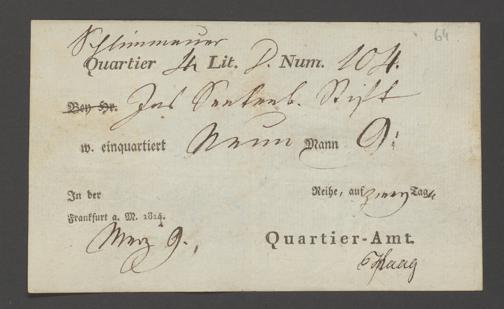 Schlimmauer
Quartier 4 Lit. D. Num. 104.
64
Bey Hr. Das Senkenb. Stift
w. einquartiert Neun Mann 9:
In der Reihe, auf zwey Tag
Frankfurt a. M. 1814.
Merz 9.,
Quartier-Amt.
Haag